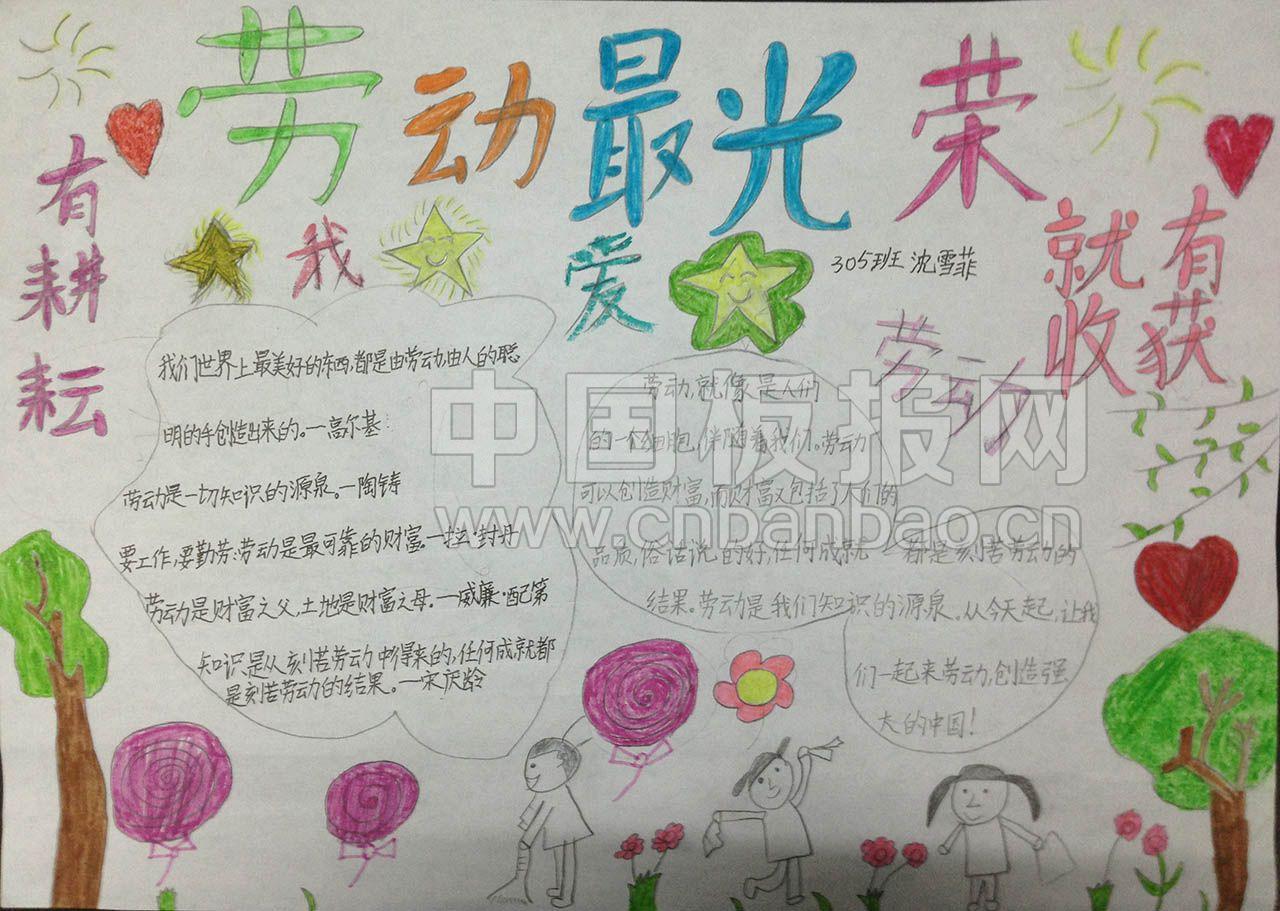 劳动最光荣
有耕耘
就有收获
我爱劳动
305班 沈雪菲
我们世界上最美好的东西,都是由劳动,由人的聪
明的手创造出来的。—高尔基
劳动是一切知识的源泉。—陶铸
要工作,要勤劳:劳动是最可靠的财富。—拉·封丹
劳动是财富之父,土地是财富之母。—威廉·配第
知识是从刻苦劳动中得来的,任何成就都
是刻苦劳动的结果。—宋庆龄
劳动,就像是人们
的一个细胞,伴随着我们。劳动
可以创造财富,而财富又包括了人们的
品质,俗话说的好,任何成就 都是刻苦劳动的
结果。劳动是我们知识的源泉。从今天起,让我
们一起来劳动,创造强
大的中国!
中国板报网
www.cnbanbao.cn